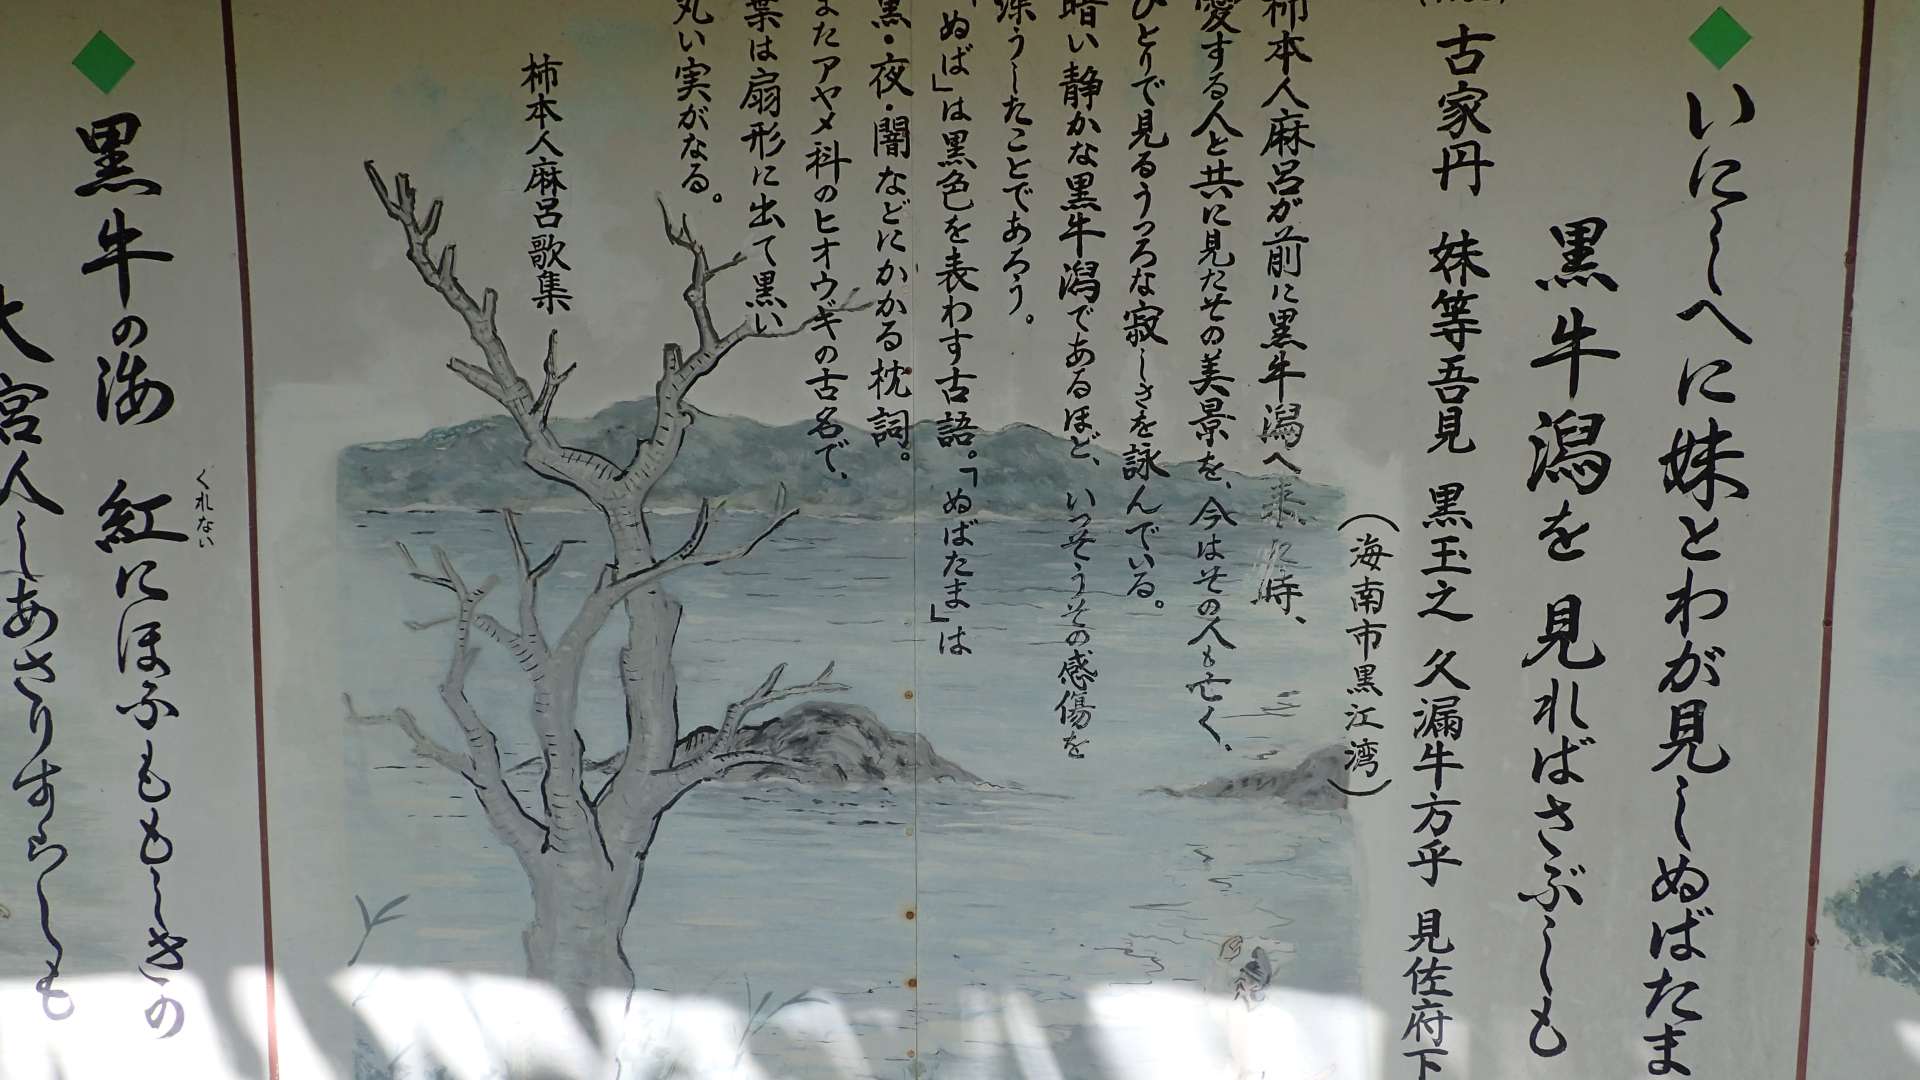 いにしへに妹とわが見しぬばたま
黒牛潟を見ればさぶしも
古家丹 妹等吾見 黒玉之 久漏牛方乎 見佐府下
(海南市黒江湾)
柿本人麻呂が前に黒牛潟へ来た時、
愛する人と共に見たその美景を、今はその人も亡く、
ひとりで見るうつろな寂しさを詠んでいる。
暗い静かな黒牛潟であるほど、いっそうその感傷を
深うしたことであろう。
「ぬば」は黒色を表わす古語。「ぬばたま」は
黒・夜・闇などにかかる枕詞。
またアヤメ科のヒオウギの古名で、
葉は扇形に出て黒い
丸い実がなる。
柿本人麻呂歌集
黒牛の海 紅にほふももしきの
くれない
大宮人しあさりすらしも